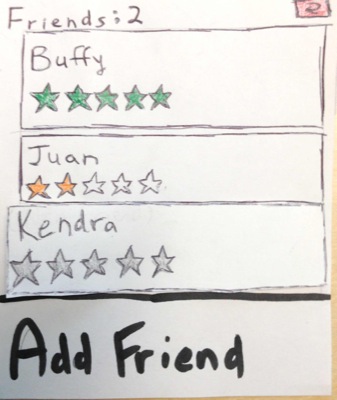 Friends: 2
2
Buffy
Juan
Kendra
Add Friend